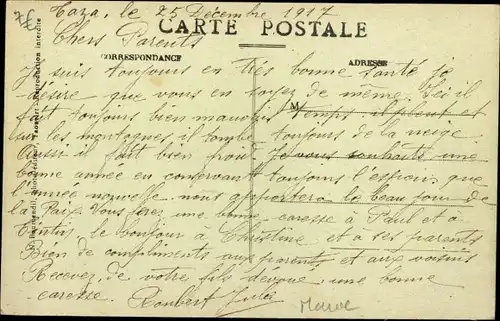 7€
Taza, le 25 Décembre 1917
CARTE POSTALE
Chers Parents
CORRESPONDANCE
ADRESSE
Je suis toujours en très bonne santé je
désire que vous en soyez de même. Ici il
fait toujours bien mauvais temps il pleut et
M
sur les montagnes il tombe toujours de la neige
aussi il fait bien froid Je vous souhaite une
bonne année en conservant toujours l'espoir que
l'année nouvelle nous apportera le beau jour de
la Paix. Vous ferez une bonne caresse à Paul et à
le bonjour à Christine et a ses parents
Bien de compliments aux parents et aux voisins
Recevez de votre fils dévoué une bonne
caresse
Reproduction interdite
Maroc